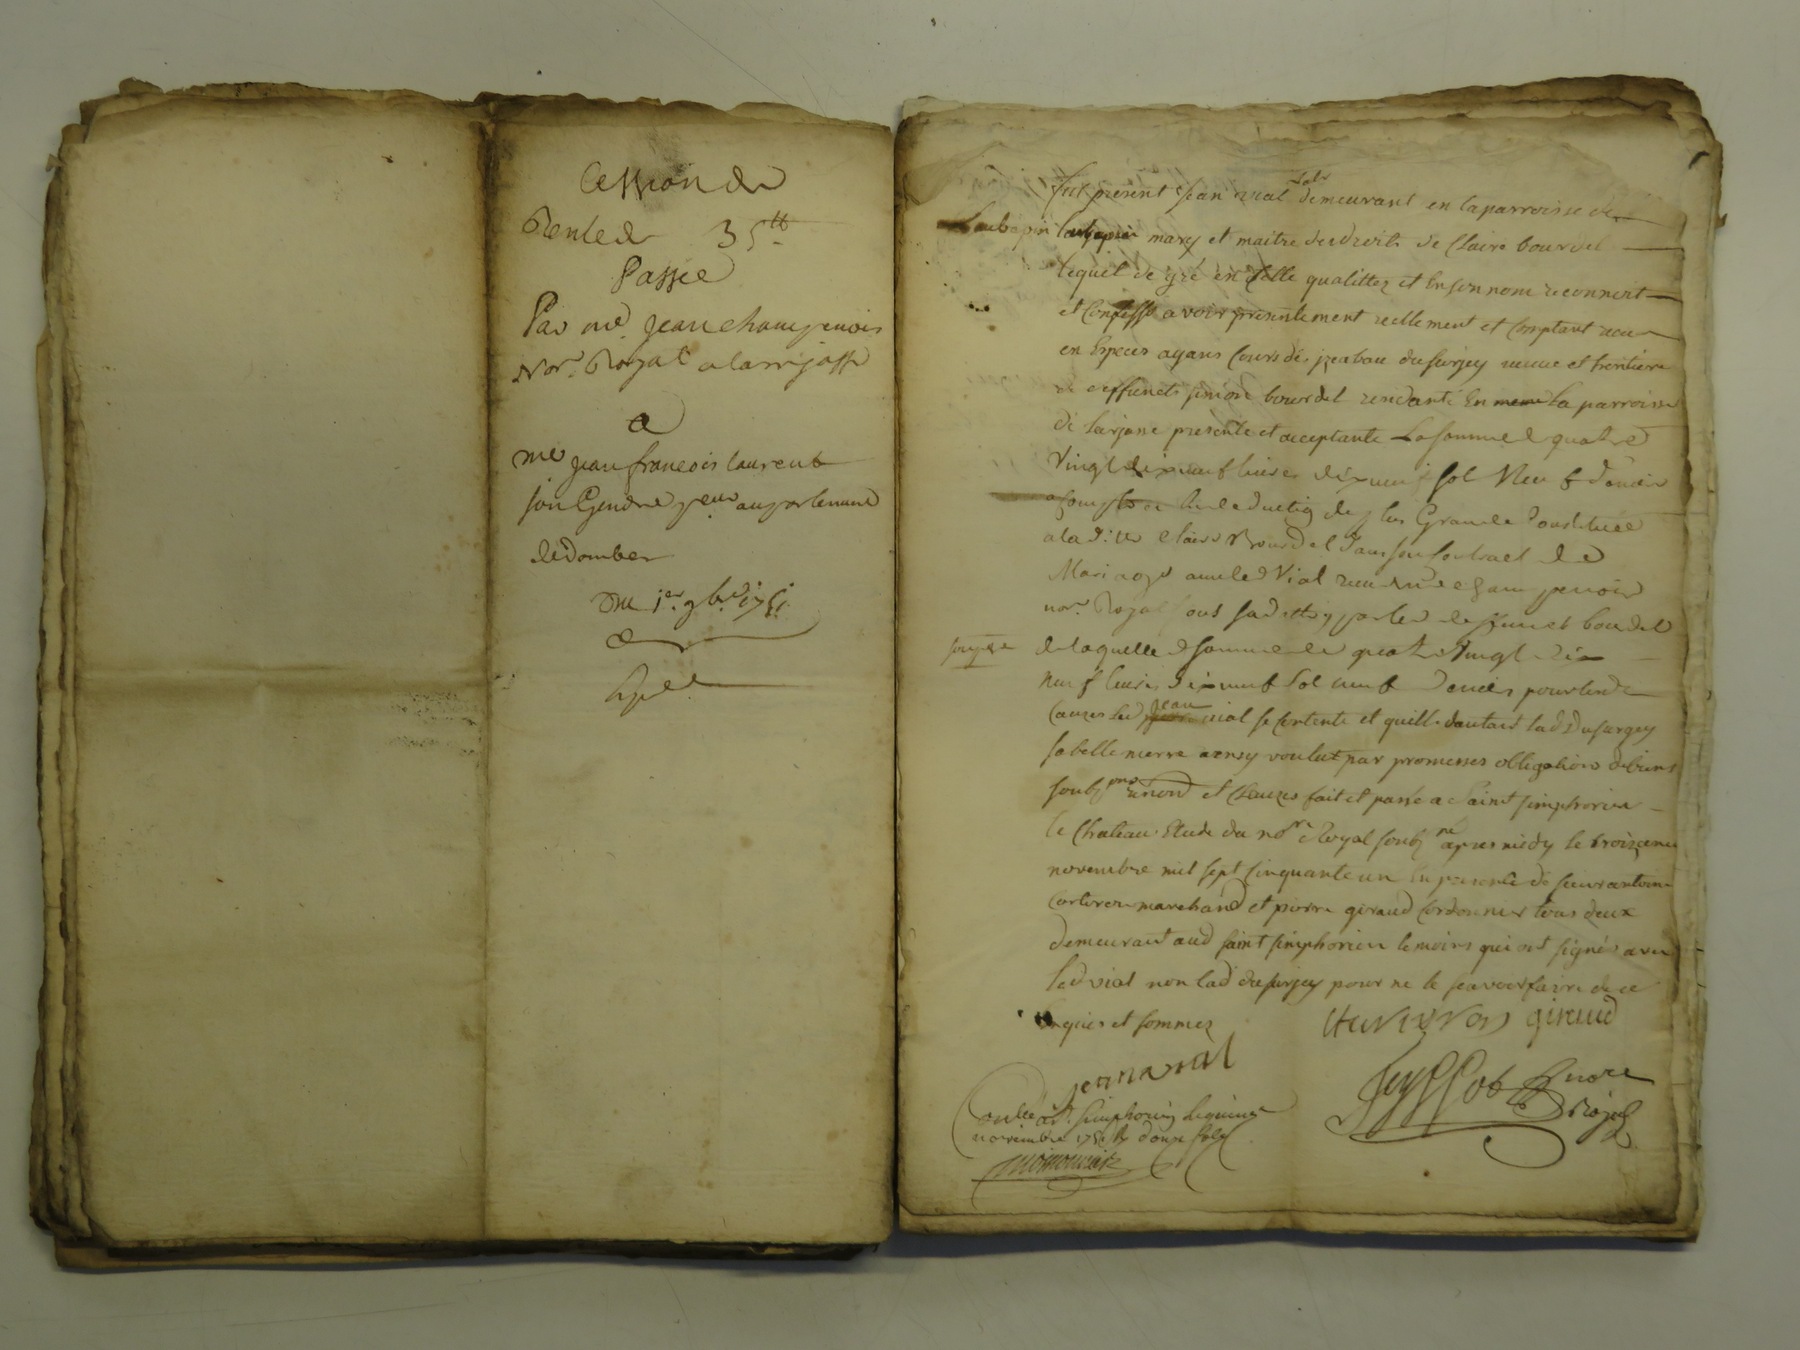 Cession de
Rente de 35ᵗᵗ
Passée
Par me Jean champenois
Nore. Royal a larrijasse
a
me Jean francois laurent
son Gendre au parlement
dedombes
du 1er. 9bre 1751
Fut présent Jean vial demeurant en la parroisse de
Laubepin mary et maitre des droits de Claire bourdel
lequel de gré en telle qualittez et en son nom reconnoit
et Confesse avoir présentement reellement et Comptant receu
en Especes ayans Cours de, du surjey veuve et heritiere
de deffunct simon bourdel residante En la parroisse
de larjasse présente et acceptante La somme de quatre
Vingt dix neuf livres dix neuf sol Neuf denier
a Compte et en deduction de plus Grande Constituée
a la d:tte Claire Bourdel dans son Contract de
Mariage avec led Vial receu me champenois
nore. Royal sous sa datte par led deffunct bourdel
de laquelle somme de quatre Vingt dix
neuf livres dix neuf sol neuf deniers pour lesd
causes led Jean vial se Contente et quitte dautant lad Dusurgey
sa belle merre ainsy voulut par promesses obligation de biens
soubz renond et Clauzes fait et passé a Saint simphorien
le Chateau Etude du nore Royal soubzné apres midy le troizieme
novembre mil sept Cinquante un En presence de sieur antoine
marchand et pierre giraud Cordonnier tous deux
demeurant aud saint simphorien temoins qui ont signés avec
led vial non lad dusurjey pour ne le scavoir faire de ce
Enquis et sommez
giraud
jean vial
Controllé a st. simphorien le quinze
novembre 1751 R douze sols